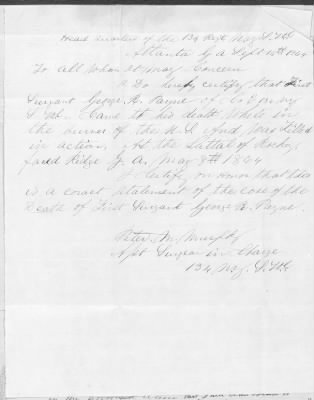 Head quarters of the 134 Regt N.Y.S. Vols
Atlanta G a Sept 10th 1864
To all Whom it May Concern
I Do hereby certify that First
Surgant George R. Payne of Co E 134 N.Y
S. Vol. Came to his death While in
the survice of the U.S. And Was killed
in action. At the battal of Rocky
faced Ridge G. A. May 8th 1864
I Certify on Honor that this
is a corect statement of the case of the
Death of First Surgant George R. Payne.
Peter M Murphy
Asst Surgeon in Charge
134 N.Y. S. Vols